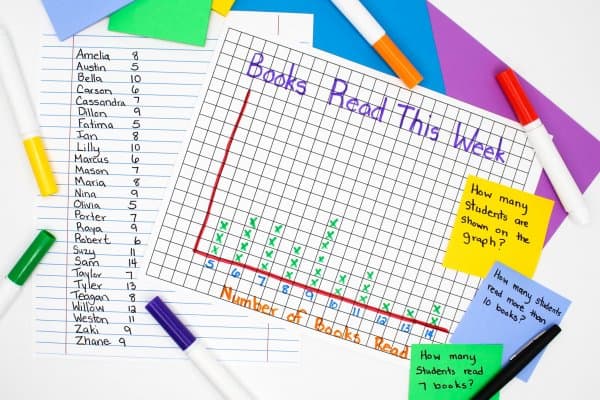 Amelia 8
Austin 5
Bella 10
Carson 6
Cassandra 7
Dillon 9
Fatima 5
Ian 8
Lilly 10
Marcus 6
Mason 7
Maria 8
Nina 9
Olivia 5
Porter 7
Raya 9
Robert 6
Suzy 11
Sam 14
Taylor 7
Tyler 13
Teagan 8
Willow 12
Weston 11
Zaki 9
Zhane 9
Books Read This Week
5 6 7 8 9 10 11 12 13 14
Number of Books Read
How many
students are
shown on the
graph?
How many students
read more than
10 books?
How many
students read
7 books?